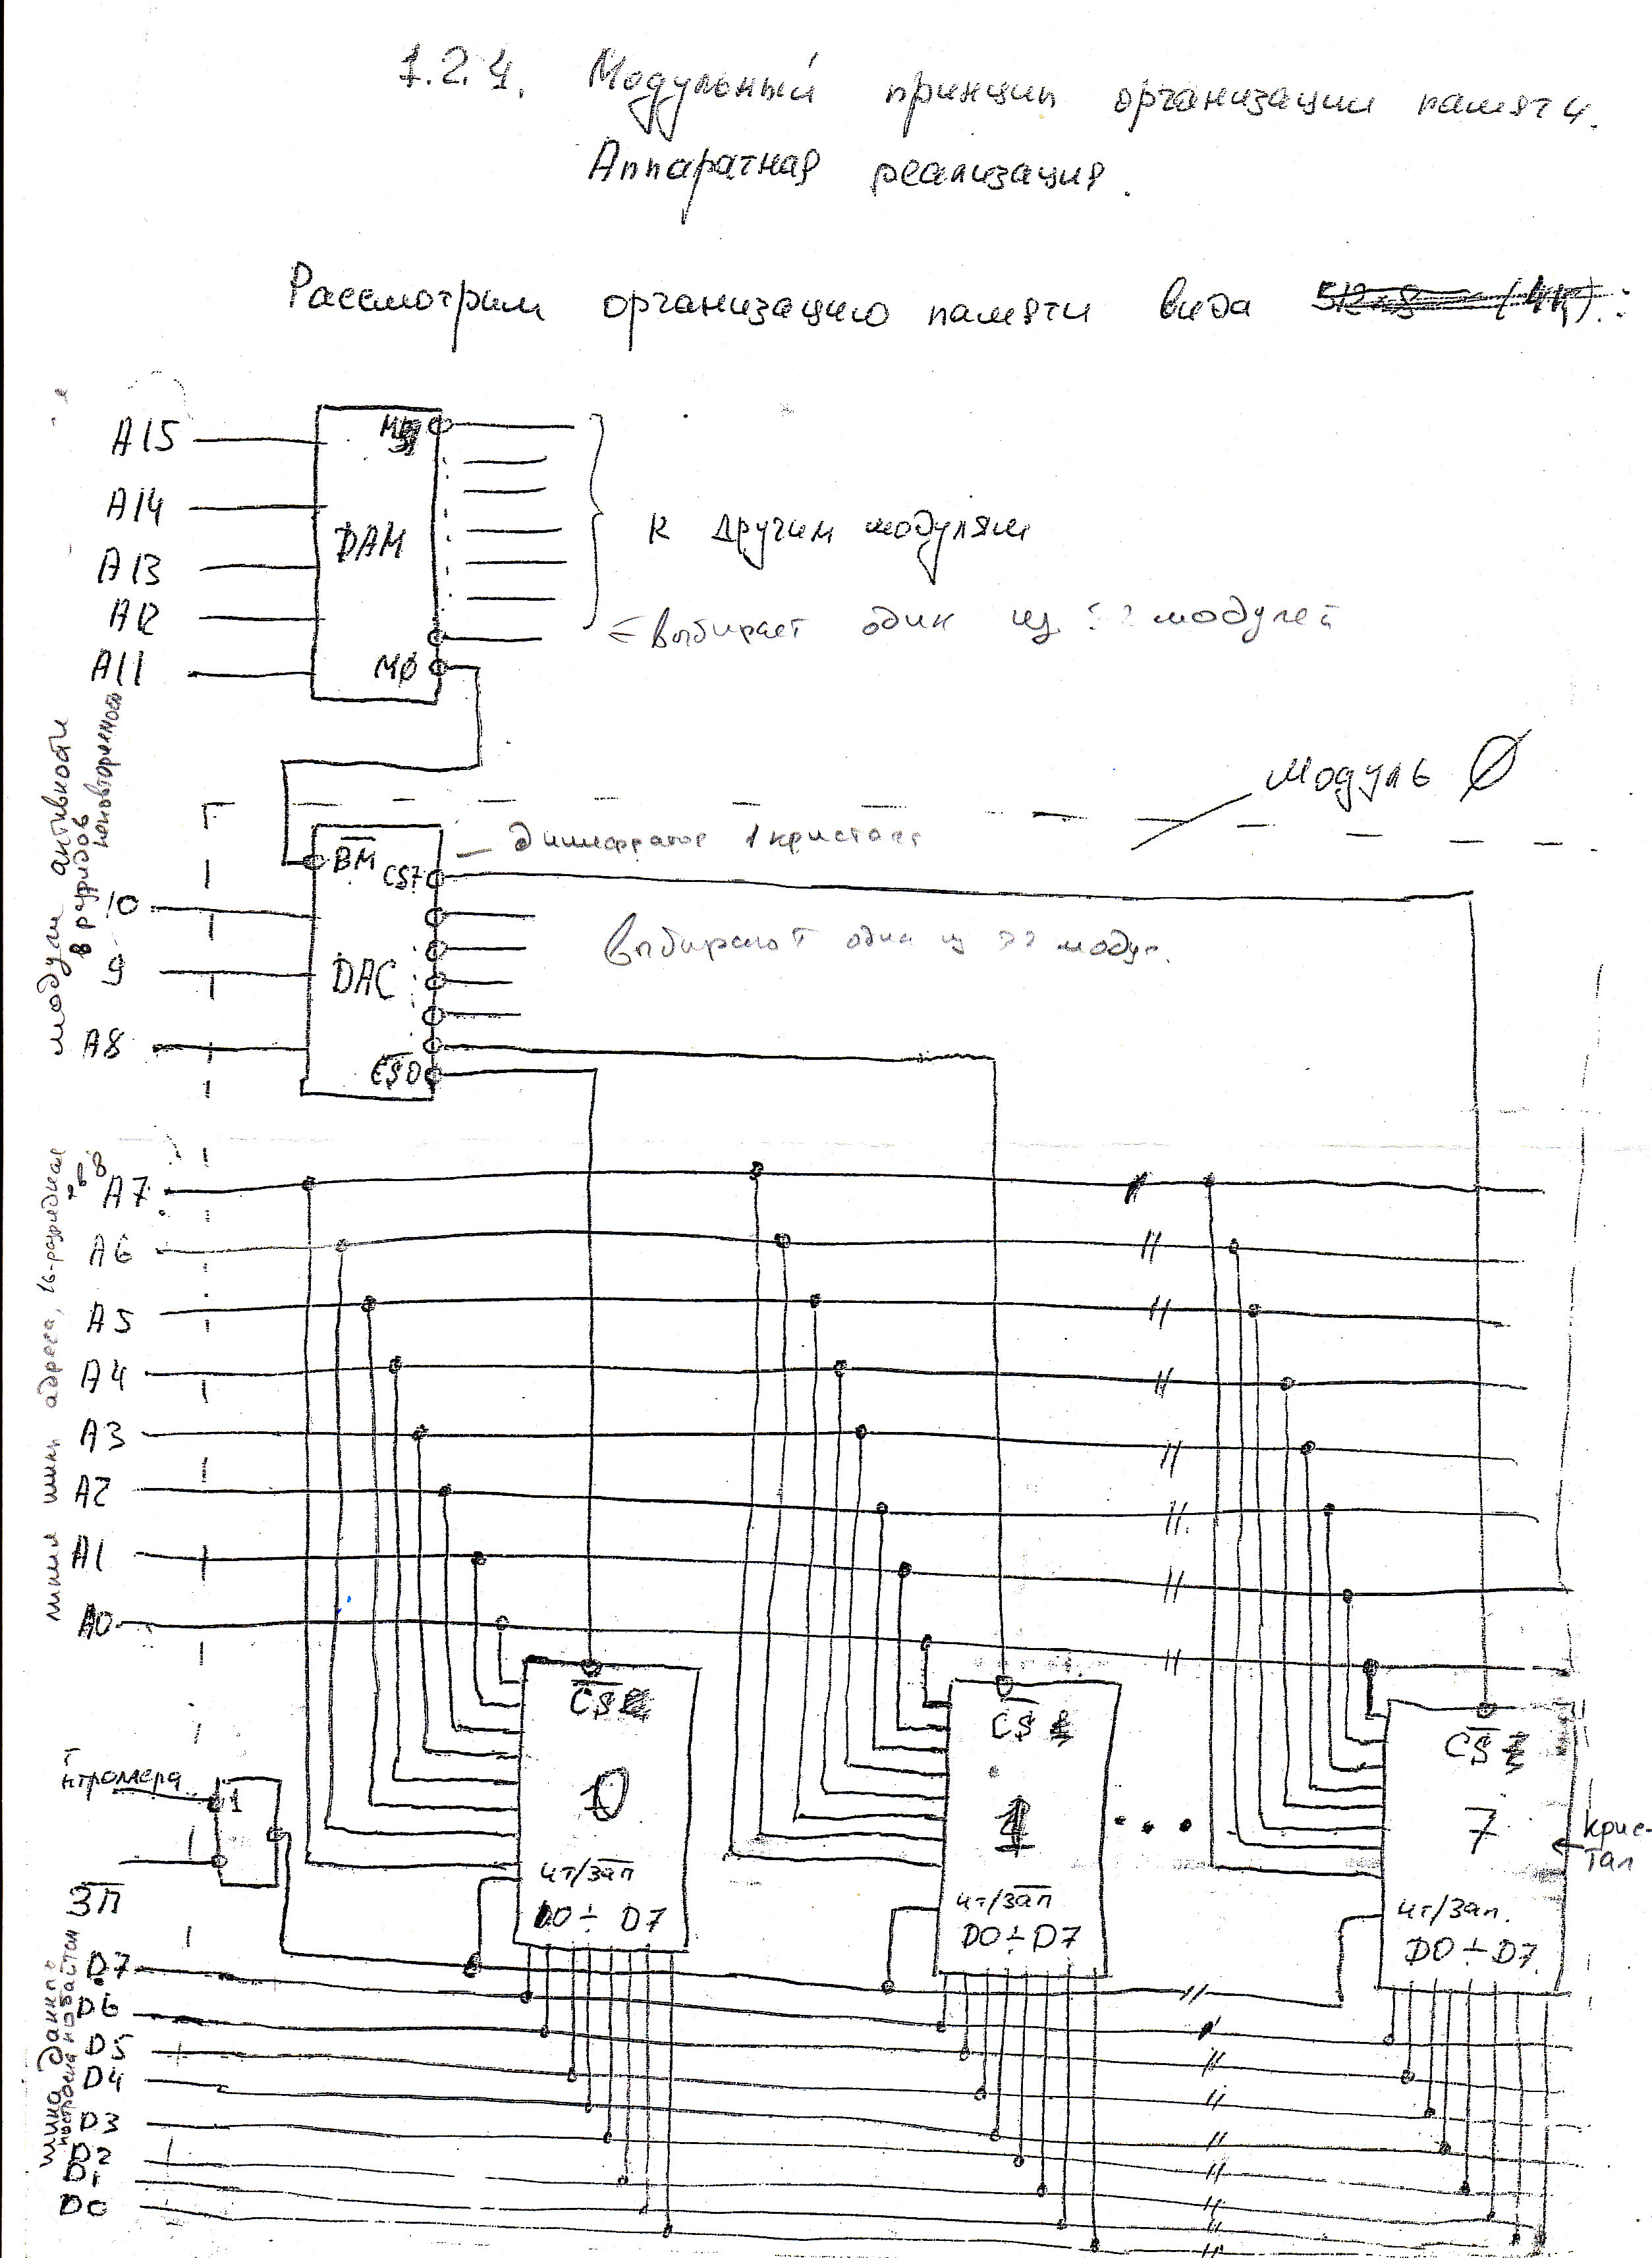 1.2.4. Модульный принцип организации памяти.
Аппаратная реализация.
Рассмотрим организацию памяти вида
A15
A14
A13
A12
A11
DAM
MØ
К другим модулям
выбирает один из 32 модулей
Модуль Ø
BM
CS7
дешифратор 1 кристалл
10
9
A8
DAC
CS0
выбирают один из 32 модул.
модули активности
8 разрядов
линии шины адреса, 16-разрядная
A7
A6
A5
A4
A3
A2
A1
A0
CS
0
чт/зап
D0÷D7
CS
1
чт/зап
D0÷D7
CS
7
чт/зап.
D0÷D7
крис-
тал
нтроллера
1
ЗП
шина данных
построена на байтом
D7
D6
D5
D4
D3
D2
D1
D0